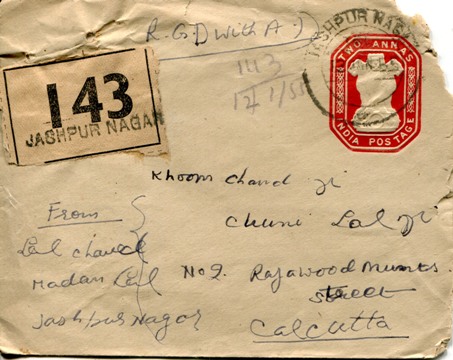 R.G.D with A.D
JASHPUR NAGAR
TWO ANNAS
INDIA POSTAGE
143
12/1/55
143
JASHPUR NAGAR
Khoom Chand Ji
Chuni Lal Ji
No 9. Rajawood
Street
Calcutta
From
Lal Chand
Madan Lal
Jashpur Nagar